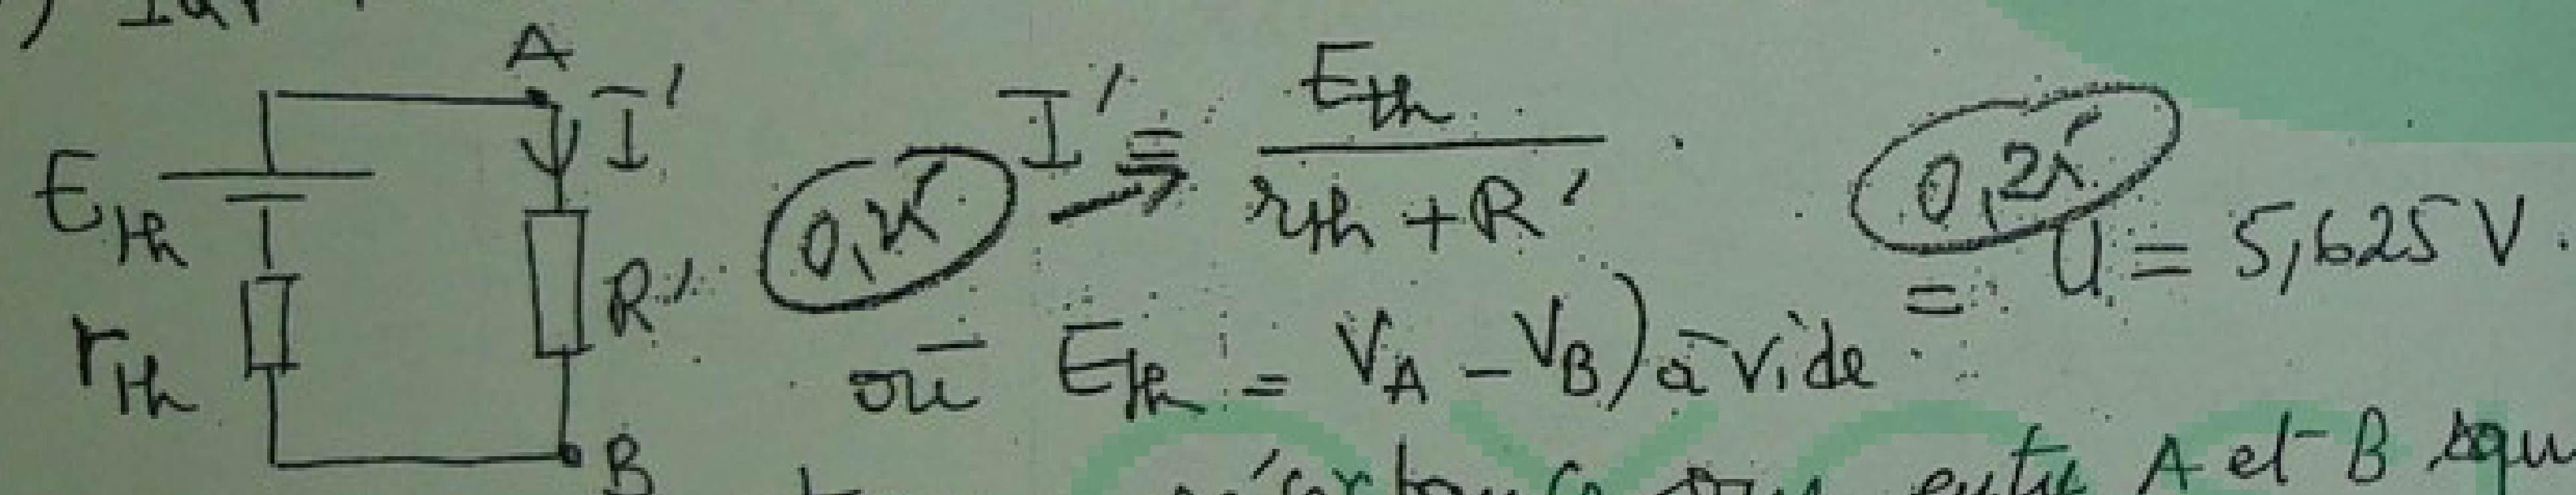 A
I'
E_th
r_th
R'
B
0,25
I' = E_th / (r_th + R')
0,25
où E_th = V_A - V_B) à vide = U = 5,625 V.
entre A et B équ